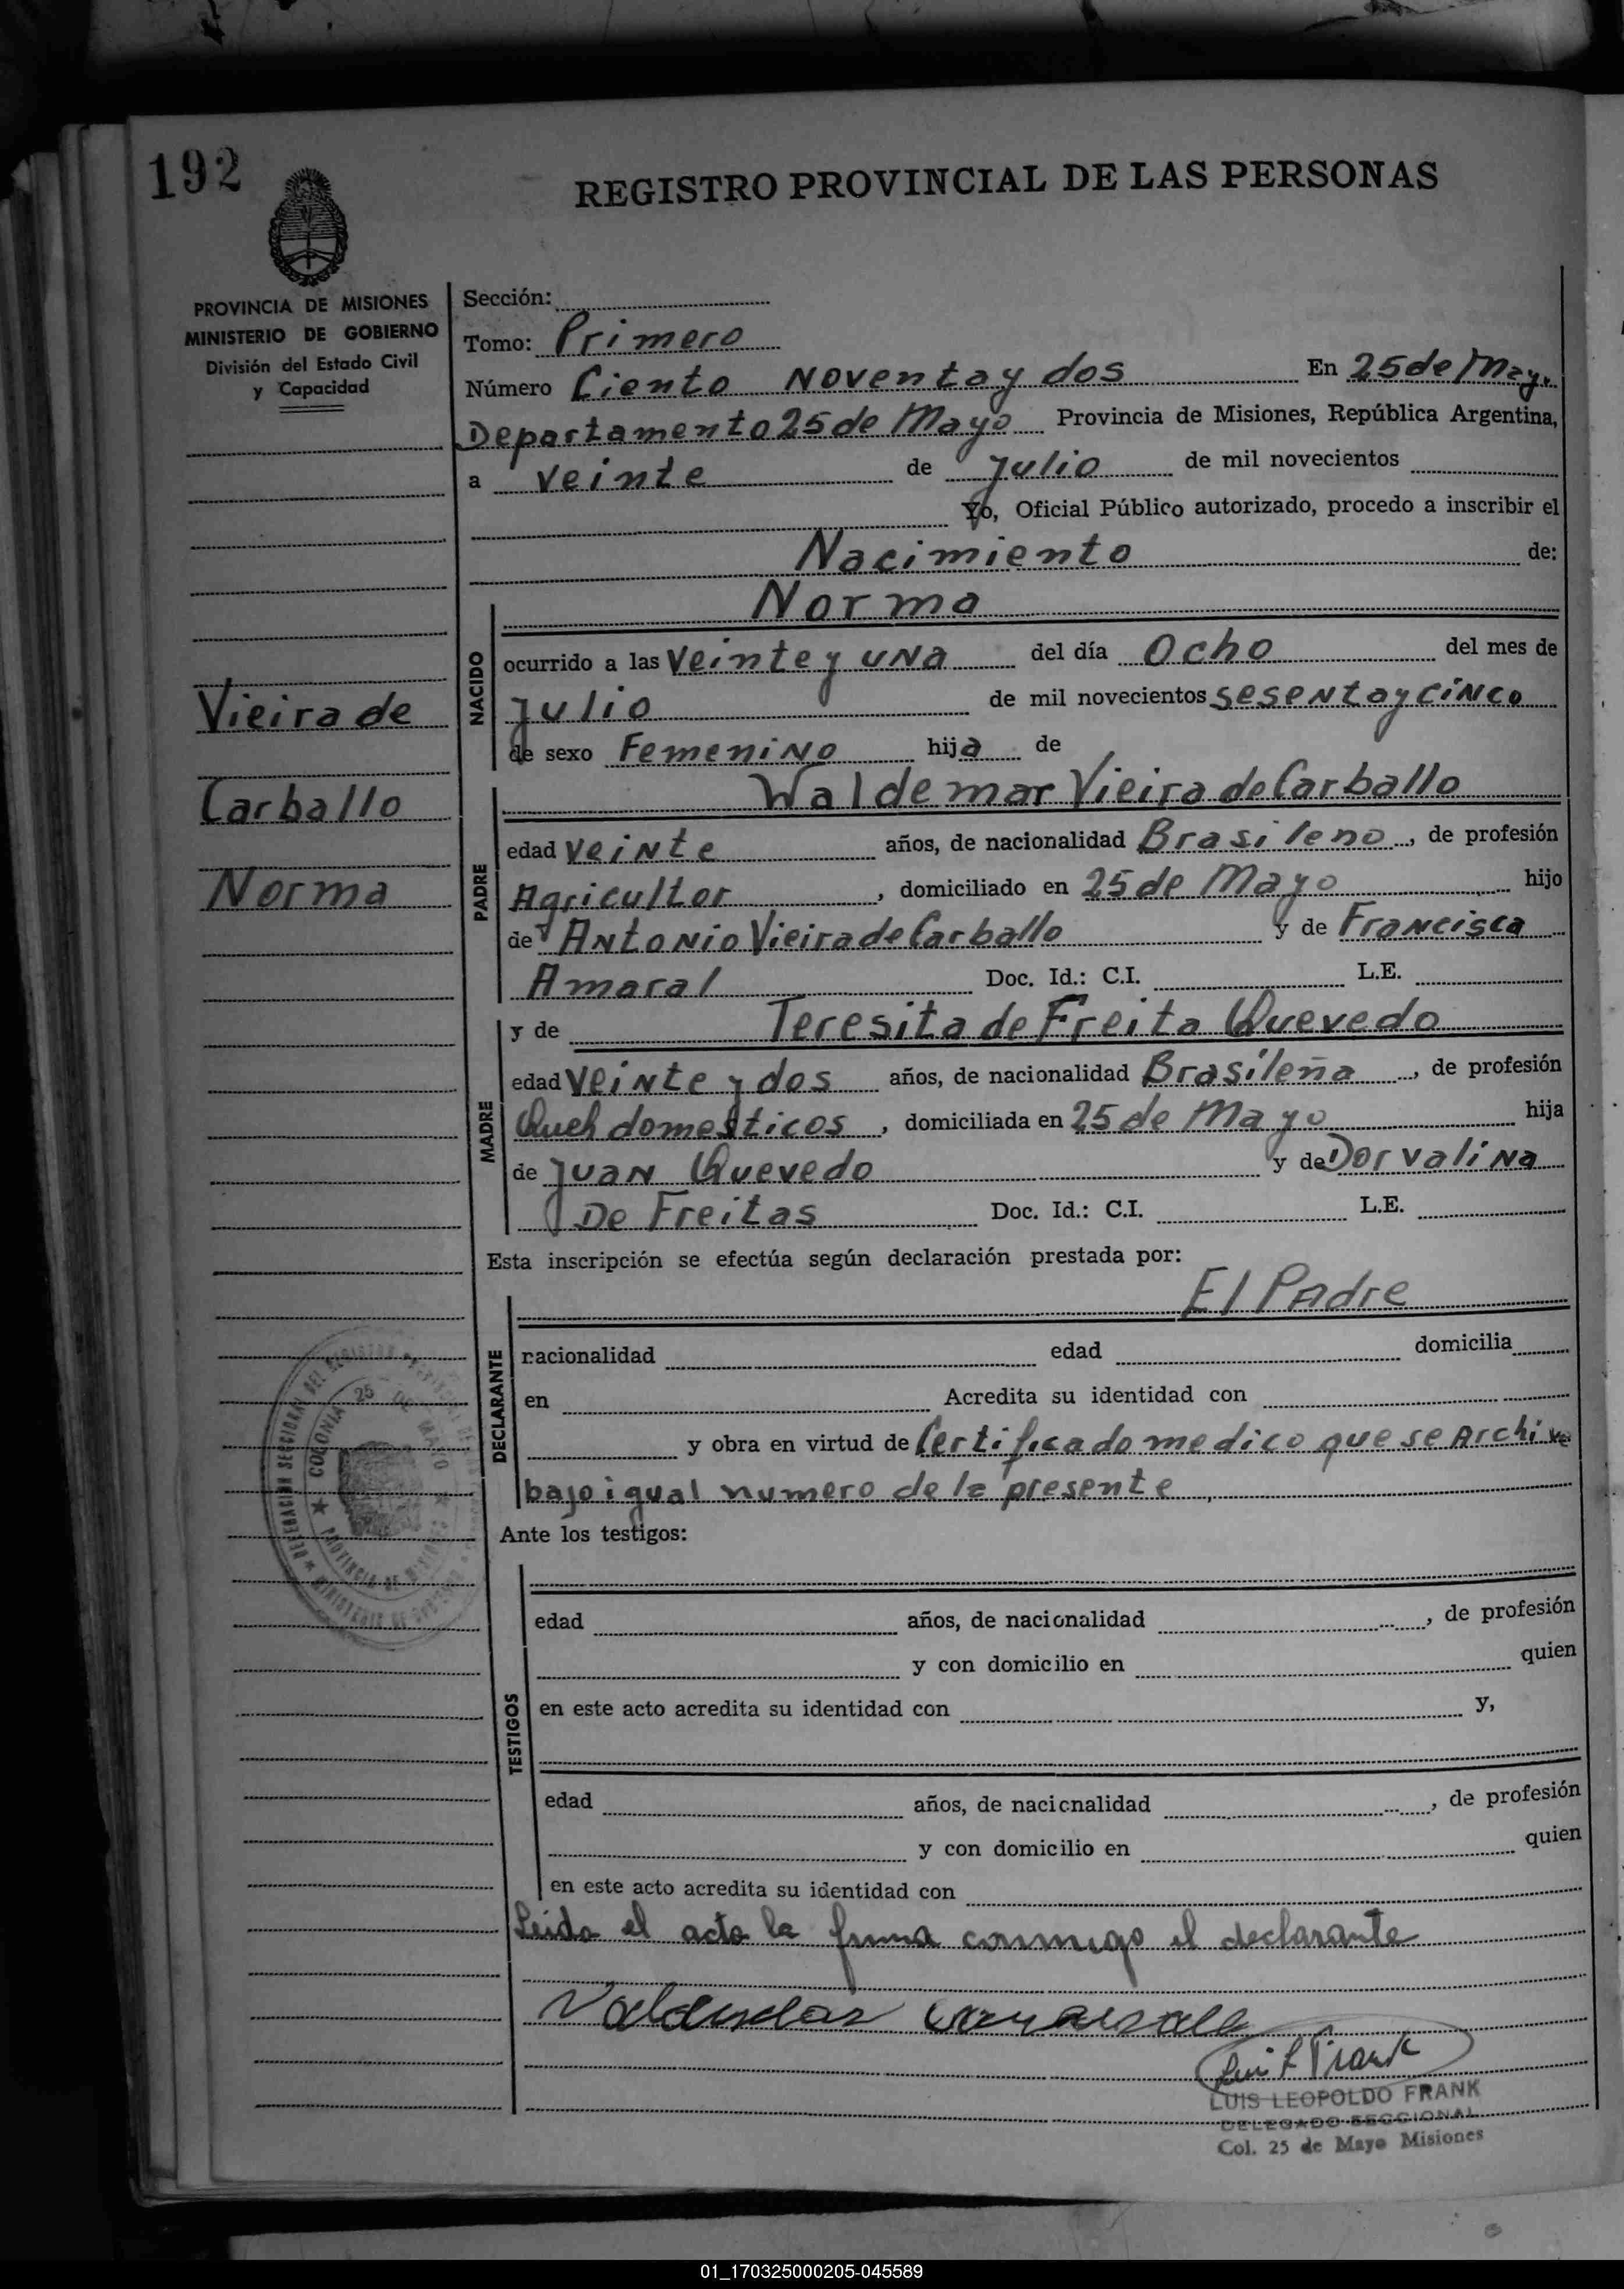 192
REGISTRO PROVINCIAL DE LAS PERSONAS
PROVINCIA DE MISIONES
MINISTERIO DE GOBIERNO
División del Estado Civil
y Capacidad
Vieira de
Carballo
Norma
Sección:
Tomo: Primero
Número Ciento Noventa y dos En 25 de Mayo
Departamento 25 de Mayo Provincia de Misiones, República Argentina,
a veinte de Julio de mil novecientos
Yo, Oficial Público autorizado, procedo a inscribir el
Nacimiento de:
NACIDO
Norma
ocurrido a las veinte y una del día Ocho del mes de
Julio de mil novecientos sesenta y cinco
de sexo Femenino hija de
PADRE
Waldemar Vieira de Carballo
edad veinte años, de nacionalidad Brasileno, de profesión
Agricultor, domiciliado en 25 de Mayo hijo
de Antonio Vieira de Carballo y de Francisca
Amaral Doc. Id.: C.I. L.E.
MADRE
y de Teresita de Freita Quevedo
edad veinte y dos años, de nacionalidad Brasileña, de profesión
Queh domesticos, domiciliada en 25 de Mayo hija
de Juan Quevedo y de Dorvalina
De Freitas Doc. Id.: C.I. L.E.
Esta inscripción se efectúa según declaración prestada por:
DECLARANTE
El Padre
nacionalidad edad domicilia
en Acredita su identidad con
y obra en virtud de Certificado medico que se Archiva
bajo igual numero de la presente
COLONIA 25 DE MAYO
Ante los testigos:
TESTIGOS
edad años, de nacionalidad , de profesión
y con domicilio en quien
en este acto acredita su identidad con y,
edad años, de nacionalidad , de profesión
y con domicilio en quien
en este acto acredita su identidad con
Leida el acta la firma conmigo el declarante
Luis L Frank
LUIS LEOPOLDO FRANK
DELEGADO SECCIONAL
Col. 25 de Mayo Misiones
01_170325000205-045589